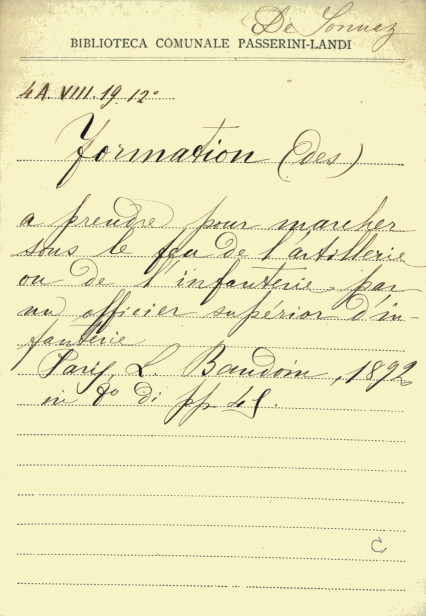 De Sonnaz
BIBLIOTECA COMUNALE PASSERINI-LANDI
4A. VIII. 19. 12º
Formation (des)
a prendre pour marcher
sous le feu de l'artillerie
ou de l'infanterie par
un officier supérior d'in-
fanterie
Paris, L. Baudoin, 1892
in 8º di pp. 48.
C